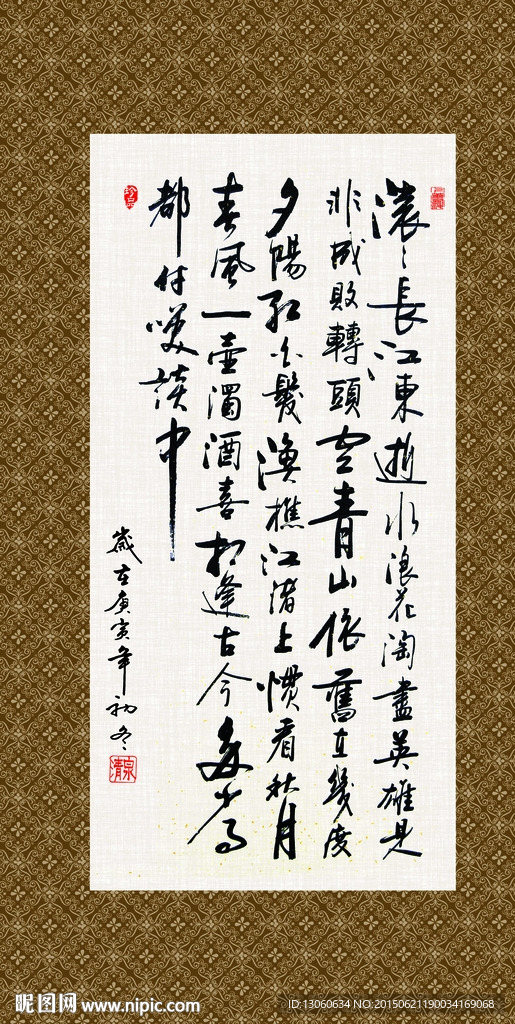 滾々長江東逝水浪花淘盡英雄是
非成敗轉頭空青山依舊在幾度
夕陽紅白髮漁樵江渚上慣看秋月
春風一壺濁酒喜相逢古今多少事
都付笑談中
歲在庚寅年初冬
泉清
昵图网 www.nipic.com
ID:13060634 NO:20150621190034169068